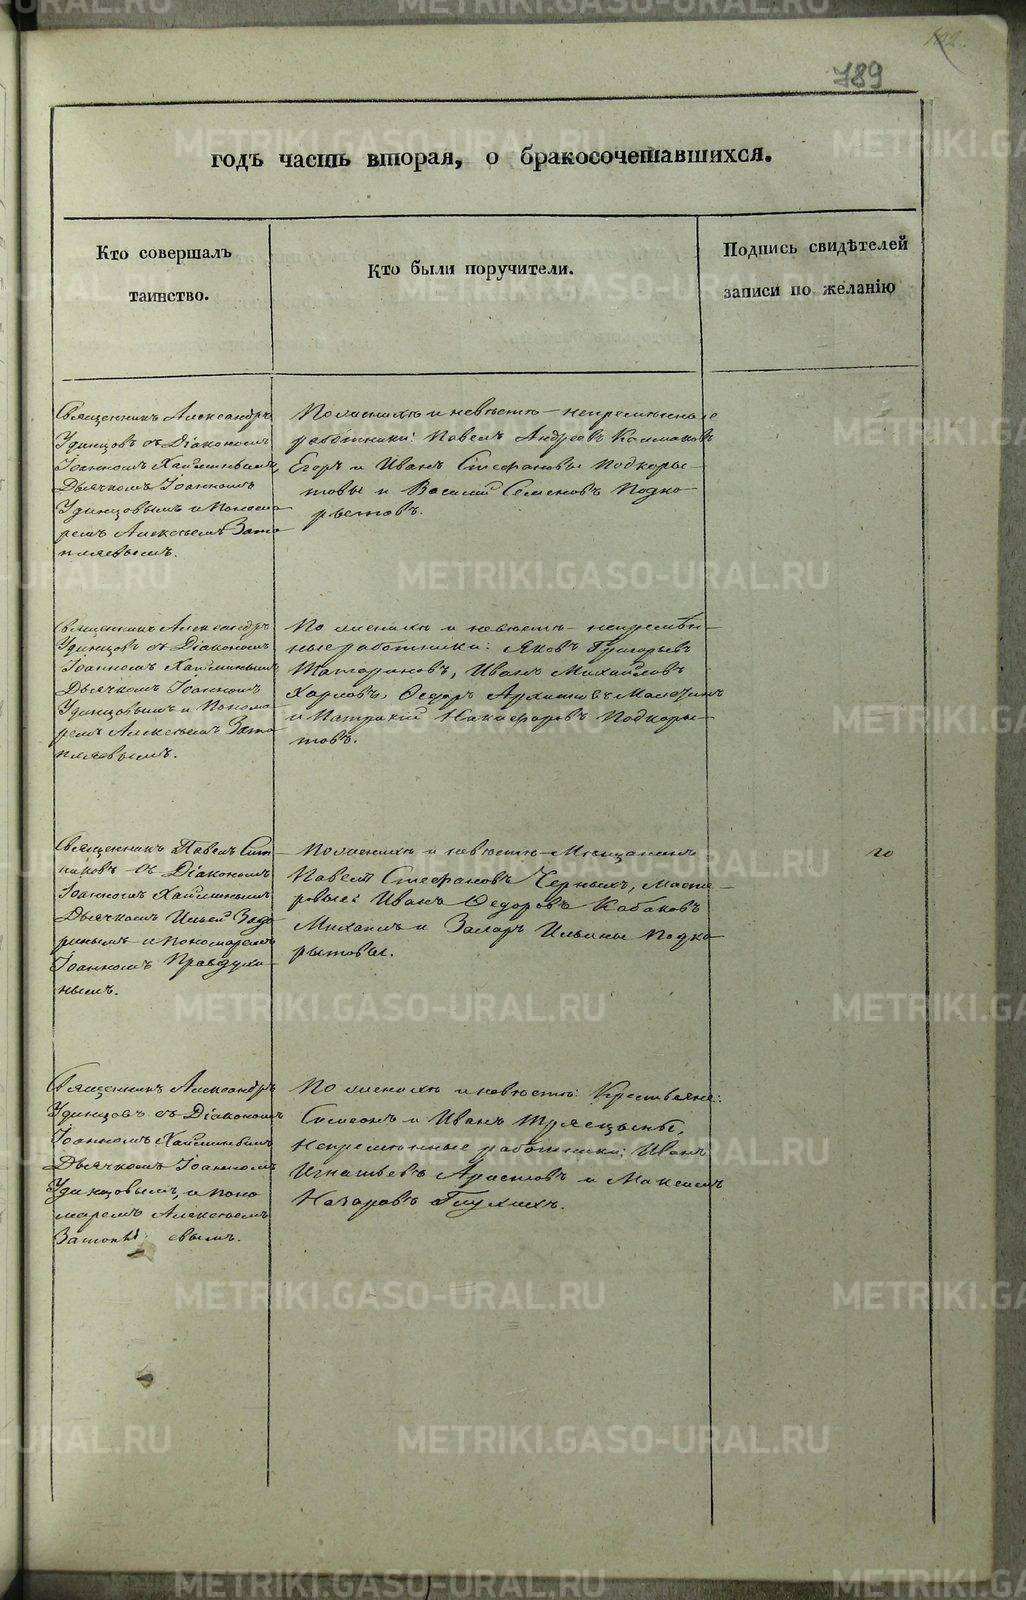 789
годъ часть вторая, о бракосочетавшихся.
Кто совершалъ
таинство.
Кто были поручители.
Подпись свидѣтелей
записи по желанію
Священникъ Александръ
Удинцовъ съ Діакономъ
Іоанномъ
Дьячкомъ Іоанномъ
Удинцовымъ и Понома
ремъ Алексѣемъ Зато
пляевымъ.
По женихѣ и невѣстѣ – непремѣнные
работники: Павелъ Андреевъ Калмаковъ
Егоръ и Иванъ Стефановы Подкоры-
товы и Василій Семеновъ Подко-
рытовъ.
Священникъ Александръ
Удинцовъ съ Діакономъ
Іоанномъ
Дьячкомъ Іоанномъ
Удинцовымъ и Понома
ремъ Алексѣемъ Зато
пляевымъ.
По женихѣ и невѣстѣ – непремѣн-
ные работники: Яковъ Григорьевъ
Иванъ Михайловъ
Харловъ, Ѳедоръ
и Патрикій Никифоровъ Подкоры-
товъ.
Священникъ Павелъ Сит
никовъ съ Діакономъ
Іоанномъ
Дьячкомъ Ильей Задо
ринымъ и пономаремъ
Іоанномъ Правдухи-
нымъ.
По женихѣ и невѣстѣ – Мѣщанинъ
Павелъ Стефановъ Черныхъ, Масте-
ровые: Иванъ Ѳедоровъ Кабаковъ
Михаилъ и Захаръ Ильины Подко
рытовы.
Священникъ Александръ
Удинцовъ съ Діакономъ
Іоанномъ
Дьячкомъ Іоанномъ
Удинцовымъ, и поно
маремъ Алексѣемъ
Затопляевымъ.
По женихѣ и невѣстѣ: Крестьяне:
Симеонъ и Иванъ Трясцыны,
Непремѣнные работники: Иванъ
Игнатьевъ и Максимъ
Назаровъ Глухихъ.
METRIKI.GASO-URAL.RU